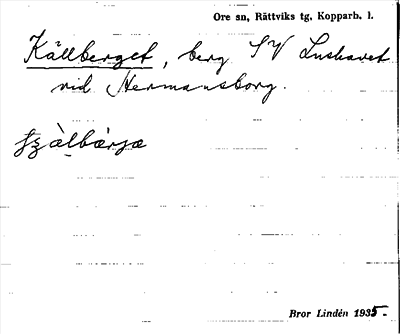 Ore sn, Rättviks tg, Kopparb. l.
Källberget, berg SV Lushavet
vid Hermansborg.
Bror Lindén 1935-